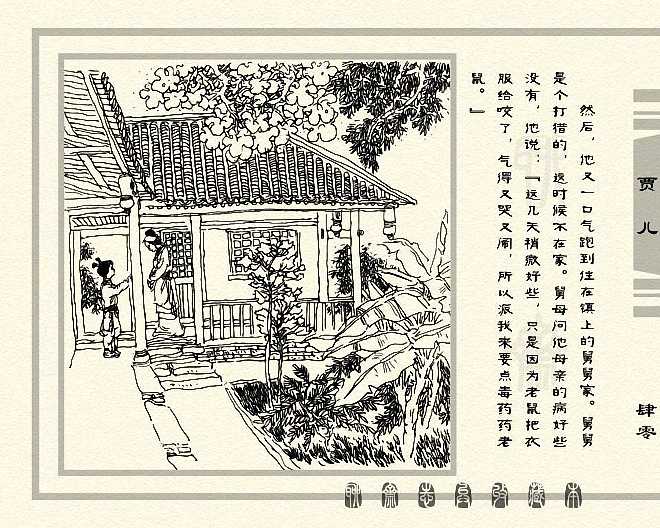 然后，他又一口气跑到住在镇上的舅舅家。舅舅
是个打猎的，这时候不在家。舅母问他母亲的病好些
没有，他说：“这几天稍微好些，只是因为老鼠把衣
服给咬了，气得又哭又闹，所以派我来要点毒药药老
鼠。”
贾儿
肆零
聊斋志异收藏本